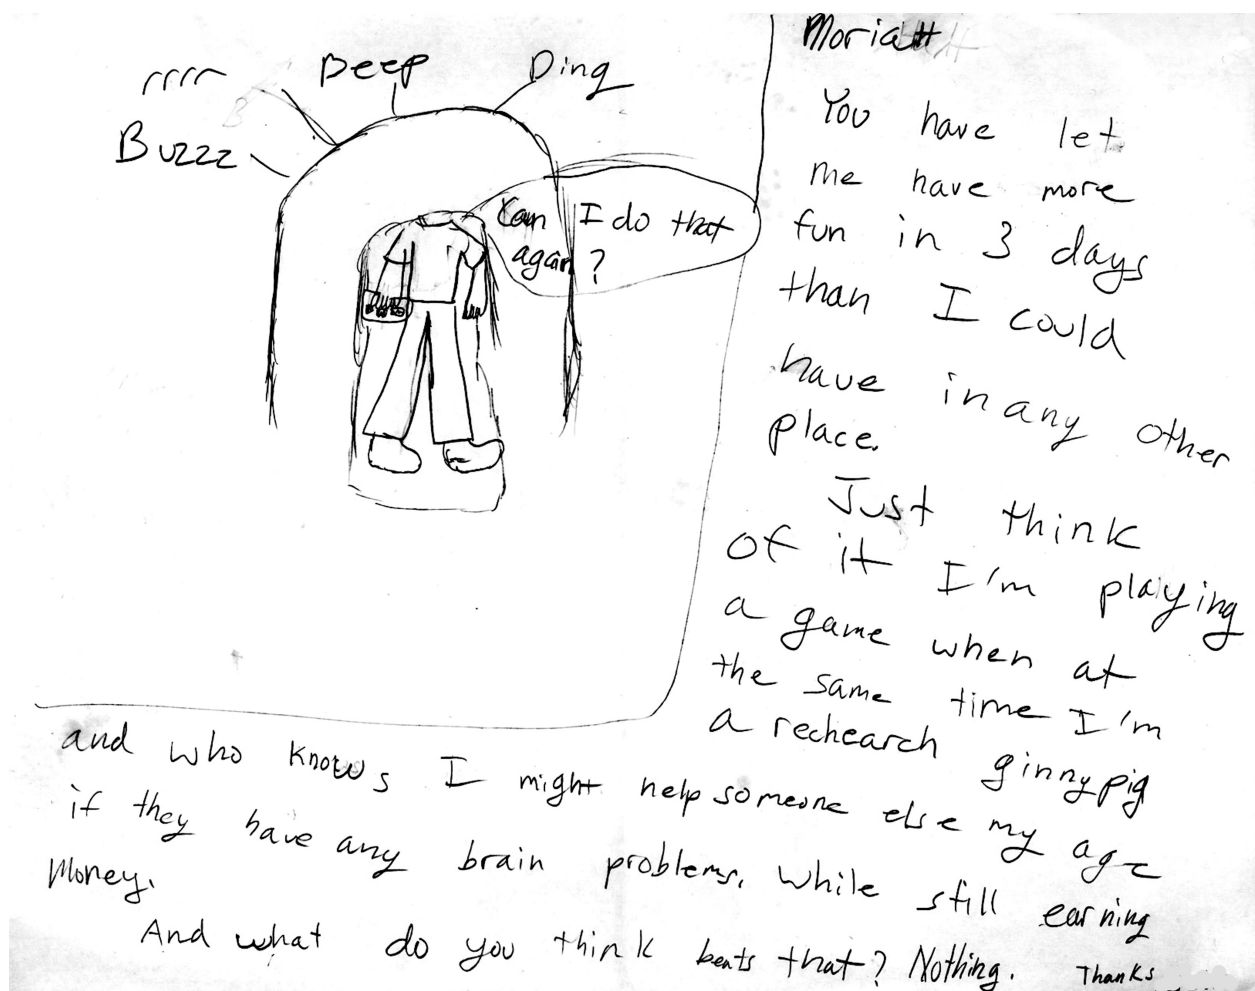 rrrr
Beep
Ding
Buzzz
Can I do that
again?
Moriah
You have let
me have more
fun in 3 days
than I could
have in any other
place.
Just think
of it I'm playing
a game when at
the same time I'm
a rechearch ginnypig
and who knows I might help someone else my age
if they have any brain problems. While still earning
Money.
And what do you think beats that? Nothing. Thanks